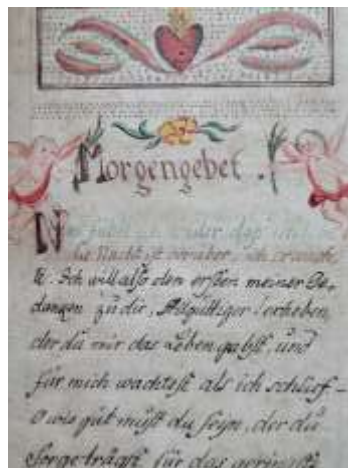 Morgengebet.
N
die Nacht ist vorüber, ich erwach
te. Ich will also den ersten meiner Ge,
danken zu dir, Allgüttiger! erheben,
der du mir das Leben gabst, und
für mich wachtest als ich schlief –
O wie gut must du seyn, der du
Sorge trägst für das gering